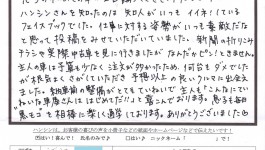 ハンシンさんを知ったのは 知人がいっも イイネ！している
フェイスブックでした。仕事に対する 姿勢がいっも 素敵だな
と思って 投稿をみせていただいていました。新聞の折り込み
チラシで 実際中古車を見に行きましたが なんだか ピンときません。
主人の車は 予算も少なく 注文が多かったため、何回も ダメでした
が 根気よく さがしていただき 予想以上の 良いクルマに出会え
ました。納車前の整備が とても ていねいで 主人も「こんなにてい
ねいな車屋さんは はじめてだ!!」と 喜んでおります。息子も毎日
ゴキ拍に 楽しく通学しております。ありがとうございました
ハンシンには、お客様の喜びの声を小冊子などの紙面やホームページなどで伝えたいです！
口はい(実名のみでき) 口はい( ニックネーム